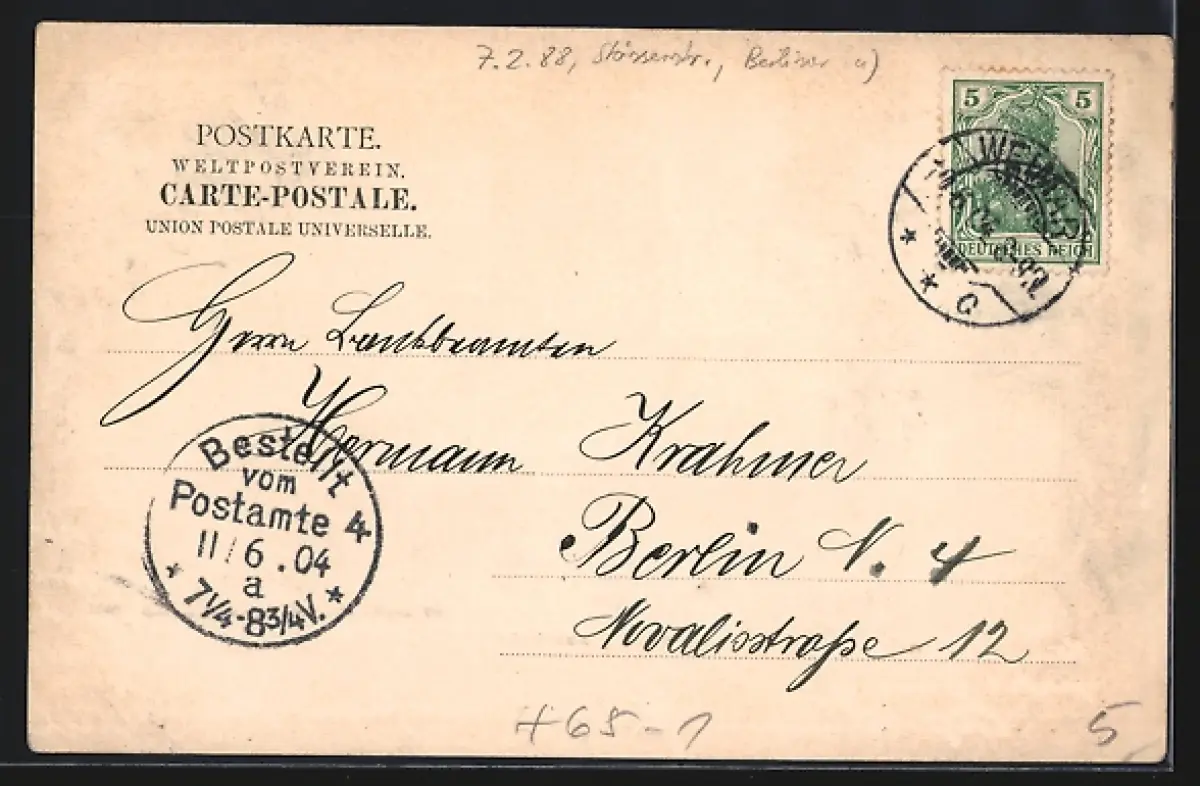 7.2.88, Berliner
POSTKARTE.
WELTPOSTVEREIN.
CARTE-POSTALE.
UNION POSTALE UNIVERSELLE.
5 5
DEUTSCHES REICH
WEIMAR
10.6.04
Herrn Bankbeamten
Hermann Krahmer
Berlin N. 4
Novalisstraße 12
Bestellt
vom
Postamte 4
11/6.04
a
* 7¼-8¾V. *
+65-1
5